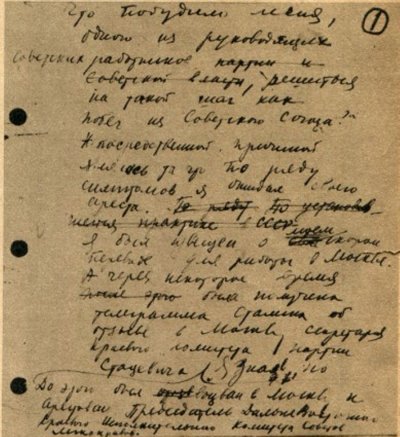 Что побудило меня, ①
одного из руководящих
советских работников партии и
Советской власти, решиться
на такой шаг как
побег из Советского Союза?
Непосредственной причиной
явилось то что по ряду
симптомов я ожидал своего
ареста. По ряду По установ-
практике в СССР
Я был извещен о моем скором
для работы в Москве.
А через некоторое время
после этого была получена
телеграмма Сталина об
отзыве в Москву секретаря
краевого комитета партии
Стацевича (я знал, что
До этой был вызван в Москву и
арестован Председатель Дальневосточного
Краевого Исполнительного Комитета Советов